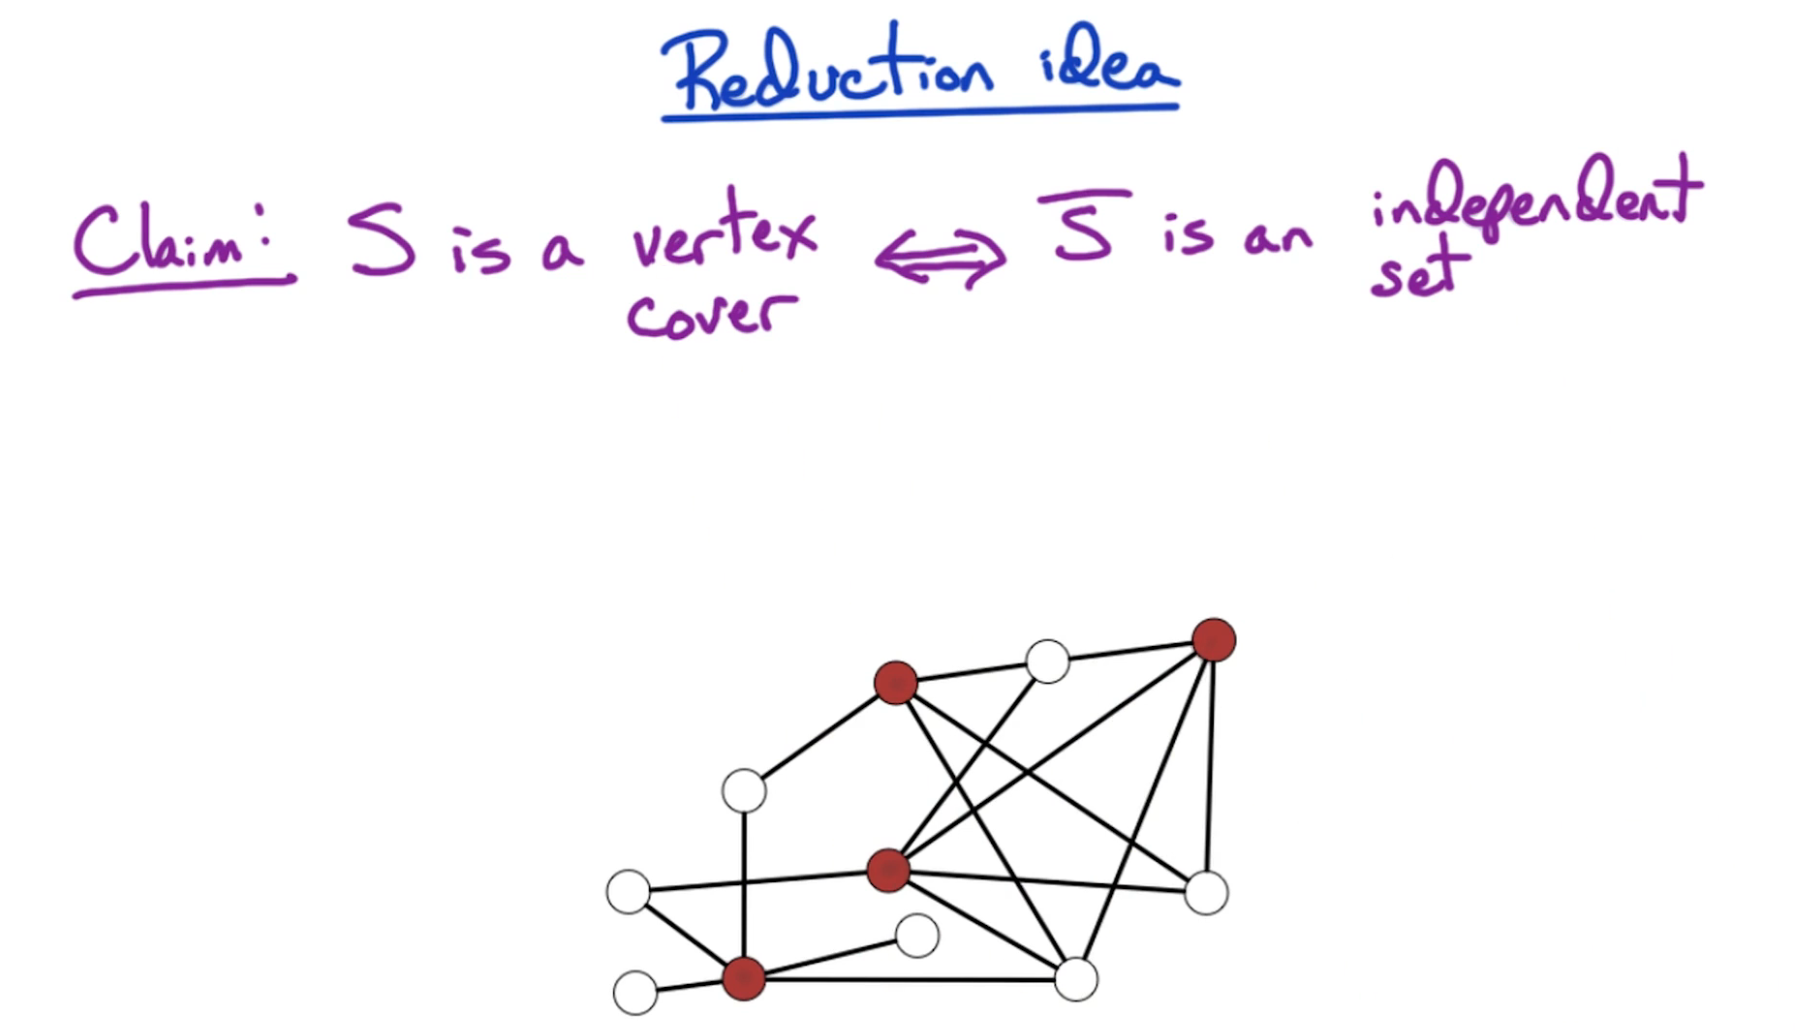 Reduction idea
Claim: S is a vertex cover ⟺ S̅ is an independent set